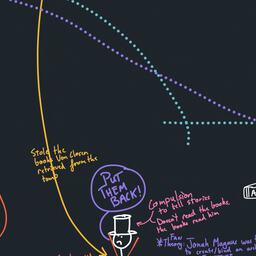 Stole the
books Von Closen
retrieved from the
tomb
PUT
THEM
BACK!
Compulsion
to tell stories
Doesn't read the books
the books read him
*Fan
Theory: Jonah Magnus was
to create/bind an